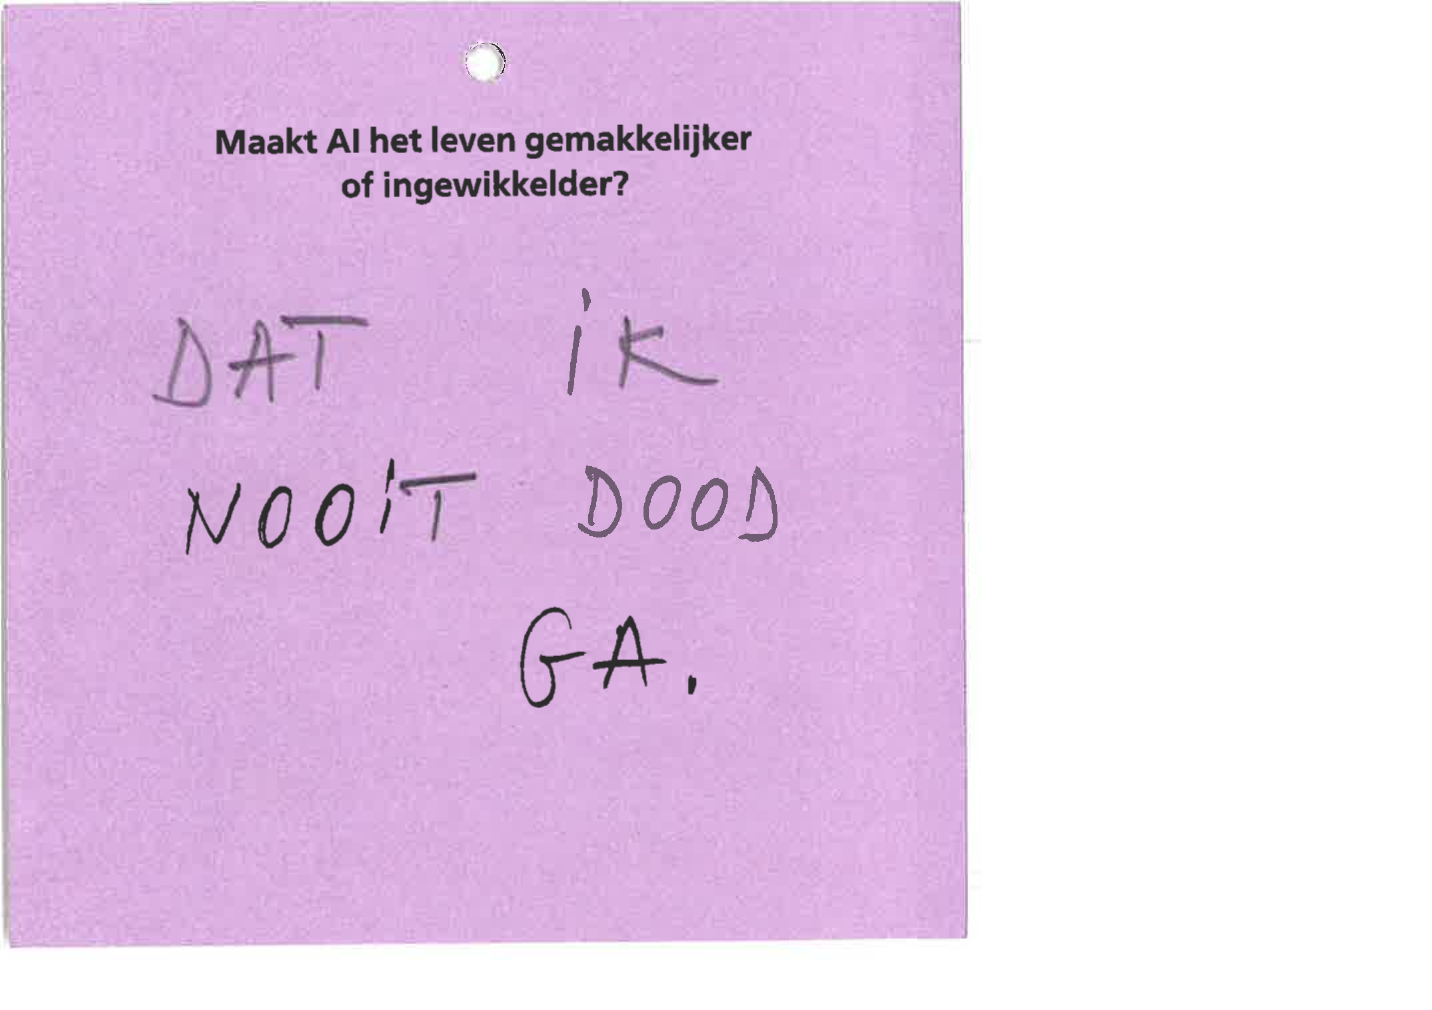 Maakt AI het leven gemakkelijker
of ingewikkelder?
DAT iK
NOOiT DOOD
GA.